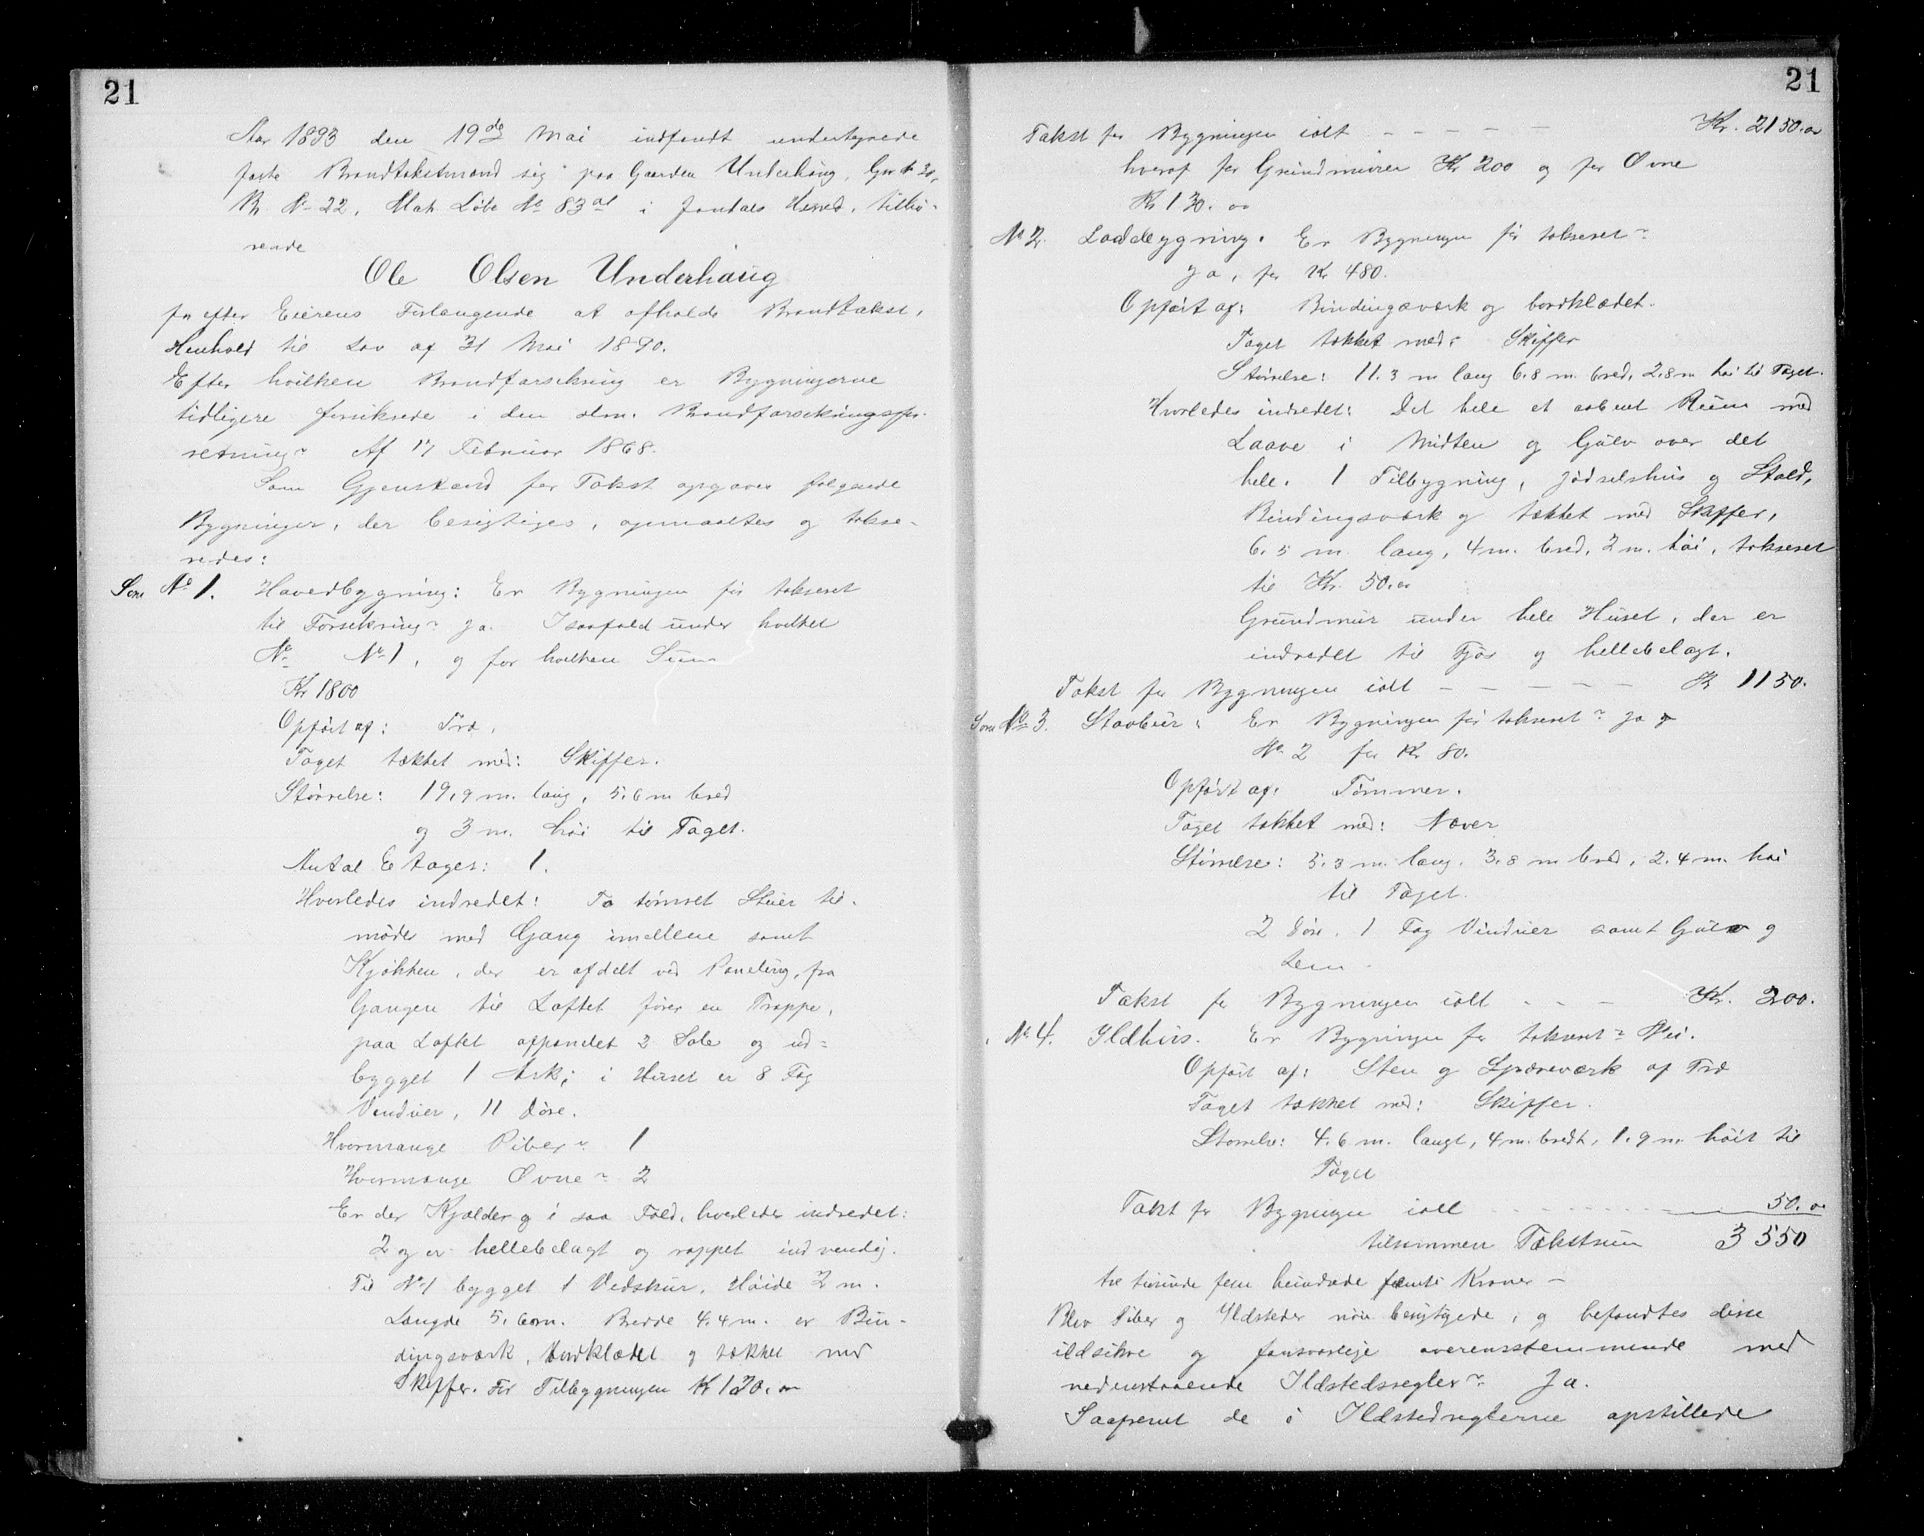 21
Aar 1893 den 19de Mai indfandt undertegnede
faste Brandtakstmænd sig paa Gaarden Underhaug, Gr. No
Br. No 22, Mat. Løbe No 83 i Jondals Herred, tilhø-
rende
Ole Olsen Underhaug
for efter Eierens Forlangende at afholde Brandtakst,
Henhold til Lov af 31 Mai 1890.
Efter hvilken Brandforsikring er Bygningerne
tidligere forsikrede i den alm. Brandforsikringsfor-
retning? Af 17 Februar 1868.
Som Gjenstand for Takst opgaves følgende
Bygninger, der besigtiges, opmaaltes og takse-
redes:
Som No 1. Hovedbygning: Er Bygningen før takseret
til Forsikring? Ja. Isaafald under hvilket
No No 1, og for hvilken Sum
Kr 1800
Opført af: Træ.
Taget tækket med: Skiffer.
Størrelse: 19,9 m. lang, 5,6 m bred
og 3 m. høi til Taget.
Antal Etager: 1.
Hvorledes indredet: To tømret Stuer til-
møder med Gang imellem samt
Kjøkken, der er afdelt ved Paneling, fra
Gangen til Loftet fører en Trappe,
paa Loftet oppandet 2 Sale og ud-
bygget 1 Ark; i Huset er 8 Fag
Vinduer, 11 Døre.
Hvormange Piber? 1
Hvormange Ovne? 2
Er der Kjælder og i saa Fald, hvorledes indredet:
2 og er hellebelagt og rappet indvendig.
Til No 1 bygget 1 Vedskur, Høide 2 m.
Længde 5,6 m. Bredde 4.4 m. er Bin-
dingsværk, bordklædet og tækket med
Skiffer. For Tilbygningen Kr 120.00
21
Takst for Bygningen ialt - - - - - Kr. 2150.00
hveraf for Grundmuren Kr 200 og for Ovne
Kr 130.00
No 2. Ladebygning. Er Bygningen før takseret?
Ja, for Kr 480.
Opført af: Bindingsværk og bordklædet.
Taget tækket med: Skiffer
Størrelse: 11.3 m lang 6.8 m. bred, 2.8 m høi til Taget.
Hvorledes indredet: Det hele et aabent Rum med
Laave i Midten og Gulv over det
hele. 1 Tilbygning, Jødselshus og Stald,
Bindingsværk og tækket med Skiffer,
6.5 m. lang, 4 m. bred, 2 m. høi, takseret
til Kr. 50.00
Grundmur under hele Huset, der er
indredet til Fjøs og hellebelagt.
Takst for Bygningen ialt - - - - - Kr 1150.
Som No 3. Stavbur: Er Bygningen før takseret? Ja
No 2 for Kr 80.
Opført af: Tømmer.
Taget tækket med: Næver
Størrelse: 5.3 m. lang. 3.8 m bred, 2.4 m. høi
til Taget.
2 Døre, 1 Fag Vinduer samt Gulv og
Lem.
Takst for Bygningen ialt - - - Kr. 200.
No 4. Ildhus. Er Bygningen før takseret? Nei.
Opført af: Sten og Sparreværk af Træ
Taget tækket med: Skiffer.
Størrelse: 4.6 m. langt, 4 m. bredt, 1.9 m. høit til
Taget
Takst for Bygningen ialt - - - - - 50.00
tilsammen Takstsum 3550
tre tusinde fem hundrede femti Kroner -
Blev Piber og Ildsteder nøie besigtigede, og befandtes disse
ildsikre og forsvarlige overensstemmende med
nedenstaaende Ildstedsregler? Ja.
Saafremt de i Ildstedreglerne opstillede